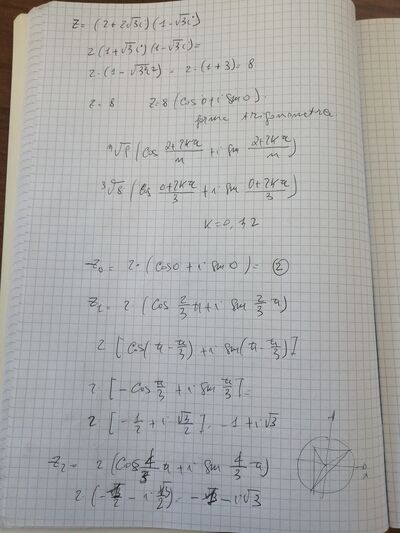 Z = (2+2√3i)(1-√3i)
2(1+√3i)(1-√3i)=
2·(1-√3²i²) = 2·(1+3) = 8
z = 8 z=8(cos0+i sin0).
forma trigonometrica
ⁿ√ρ (cos (2+2Kπ)/n + i sin (2+2Kπ)/n)
³√8 (cos (0+2Kπ)/3 + i sin (0+2Kπ)/3)
K=0, 1 2
Z₀ = 2·(cos0+i sin0) = ②
Z₁ = 2·(cos 2/3 π + i sin 2/3 π)
2[cos(π-π/3) + i sin(π-π/3)]
2[-cos π/3 + i sin π/3]=
2[-1/2 + i √3/2] = -1+i√3
Z₂ = 2(cos 4/3 π + i sin 4/3 π)
2·(- /2 - i √3/2) = - - i√3